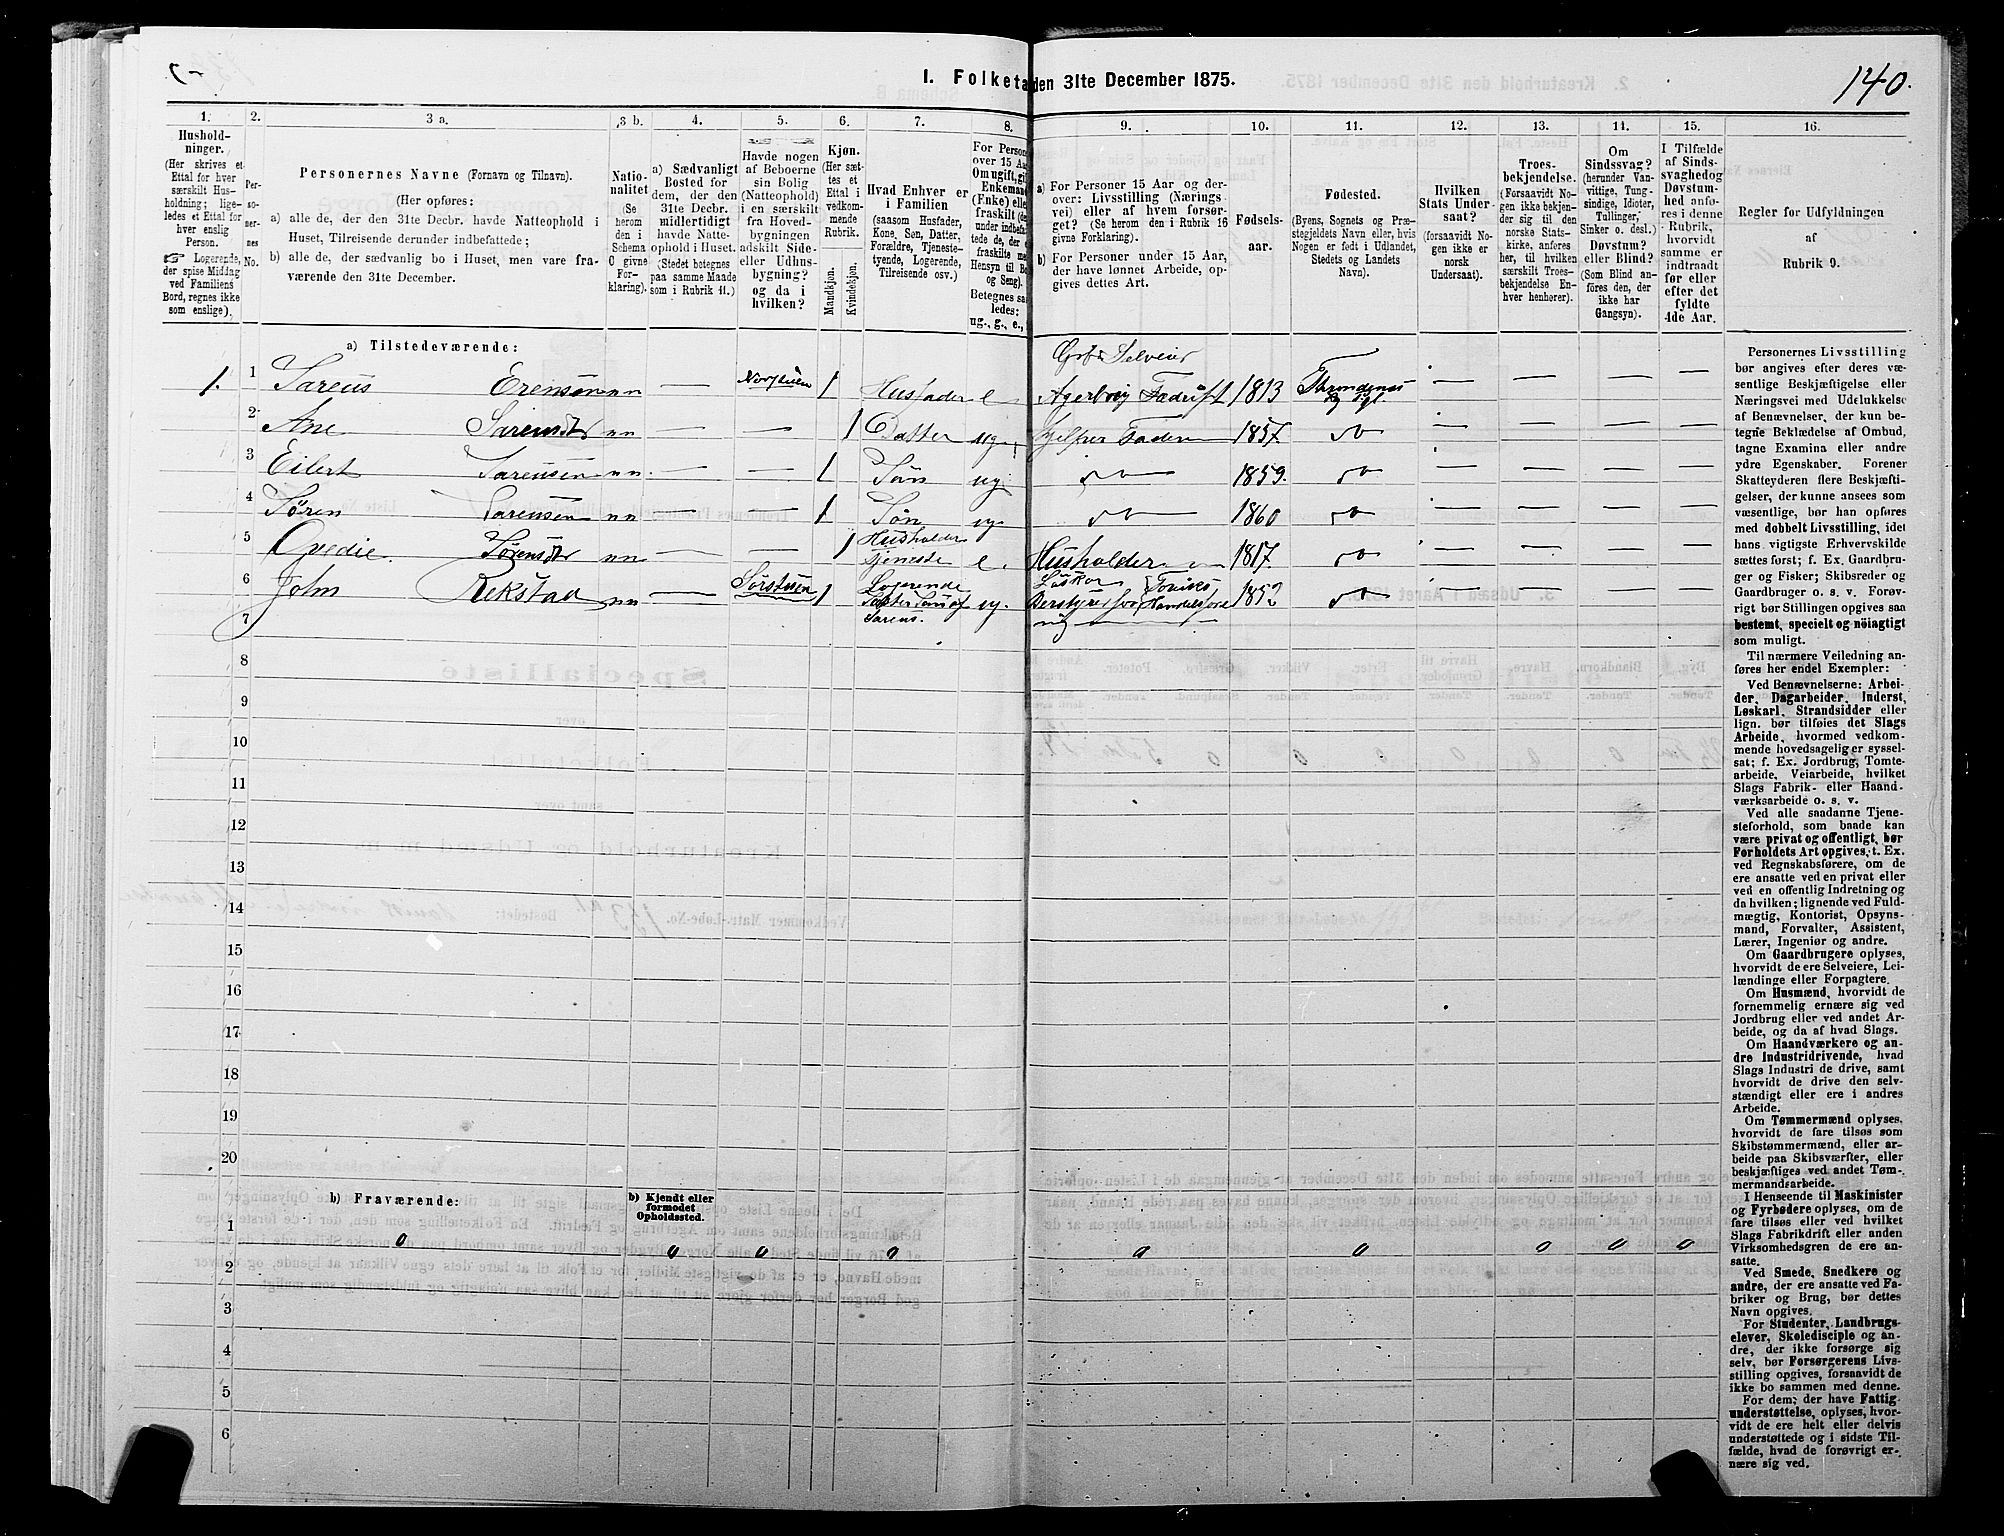 140.
1. Folketa den 31te December 1875.
1. 2. 3 a. 3 b. 4. 5. 6. 7. 8. 9. 10. 11. 12. 13. 14. 15. 16.
Hushold-
ninger.
(Her skrives et
Ettal for hver
særskilt Hus-
holdning; lige-
ledes et Ettal for
hver enslig
Person.
Logerende,
der spise Middag
ved Familiens
Bord, regnes ikke
som enslige).
Per-
so-
ner-
nes
No.
Personernes Navne (Fornavn og Tilnavn).
(Her opføres:
a) alle de, der den 31te Decbr. havde Natteophold i
Huset, Tilreisende derunder indbefattede;
b) alle de, der sædvanlig bo i Huset, men vare fra-
værende den 31te December.
Natio-
nalitet
(Se
herom
den i
Schema
O givne
For-
klaring).
a) Sædvanligt
Bosted for
dem, der den
31te Decbr.
midlertidigt
havde Natte-
ophold i Huset.
(Stedet betegnes
paa samme Maade
som i Rubrik 11.)
Havde nogen
af Beboerne
sin Bolig
(Natteophold)
i en særskilt
fra Hoved-
bygningen
adskilt Side-
eller Udhus-
bygning?
og da i
hvilken?
Kjøn.
(Her sæt-
tes et
Ettal i
vedkom-
mende
Rubrik.
Mandkjøn.
Kvindekjøn.
Hvad Enhver er
i Familien
(saasom Husfader,
Kone, Søn, Datter,
Forældre, Tjeneste-
tyende, Logerende,
Tilreisende osv.)
For Persone
over 15 Aar
Om ugift, gif
Enkemand
(Enke) eller
fraskilt (de
under indbefat-
tede de, der e
fraskilte me
Hensyn til Bo
og Seng).
Betegnes saa
ledes:
ug., g., e.,
a) For Personer 15 Aar og der-
over: Livsstilling (Nærings-
vei) eller af hvem forsør-
get? (Se herom den i Rubrik 16
givne Forklaring).
b) For Personer under 15 Aar,
der have lønnet Arbeide, op-
gives dettes Art.
Fødsels-
aar.
Fødested.
(Byens, Sognets og Præ-
stegjeldets Navn eller, hvis
Nogen er født i Udlandet,
Stedets og Landets
Navn).
Hvilken
Stats Under-
saat?
(forsaavidt No-
gen ikke er
norsk
Undersaat).
Troes-
bekjendelse.
(Forsaavidt No-
gen ikke bekjen-
der sig til den
norske Stats-
kirke, anføres
her, til hvilken
særskilt Troes-
bekjendelse En-
hver henhører).
Om
Sindssvag?
(herunder Van-
vittige, Tung-
sindige, Idioter,
Tullinger,
Sinker o. desl.)
Døvstum?
eller Blind?
(Som Blind an-
føres den, der
ikke har
Gangsyn).
I Tilfælde
af Sinds-
svaghed og
Døvstum-
hed anfø-
res i denne
Rubrik,
hvorvidt
samme er
indtraadt
før eller
efter det
fyldte
4de Aar.
Regler for Udfyldningen
af
Rubrik 9.
a) Tilstedeværende:
Gbr. Selveier
1. 1 Sareus Erensøn nn — 1 Husfader e 1813 Throndenes — — — —
2 Ane Sarensdtr nn — — 1 Datter ug Hjelper Faderen 1857. do — — — —
3 Eilert Sarensen nn — — 1 Søn ug do 1859. do — — — —
4 Søren Sarensen nn — — 1 Søn ug. do 1860 do — — — —
Husholder
5 Sørensdtr nn — — 1 tjeneste e. Husholder 1817. do — — — —
Logerende
6 John Rekstad nn — 1 ug. 1852 do — — — —
7 Sarens.
8
9
10
11
12
13
14
15
16
17
18
19
20
b) Fraværende:
b) Kjendt eller
formodet
Opholdssted.
1
0 0 0 0 0 0 0 0 0
2
3
4
5
6
Personernes Livsstilling
bør angives efter deres væ-
sentlige Beskjæftigelse eller
Næringsvei med Udelukkelse
af Benævnelser, der kun be-
tegne Beklædelse af Ombud,
tagne Examina eller andre
ydre Egenskaber. Forener
Skatteyderen flere Beskjæfti-
gelser, der kunne ansees som
væsentlige, bør han opføres
med dobbelt Livsstilling, idet
hans vigtigste Erhvervskilde
sættes først; f. Ex. Gaardbru-
ger og Fisker; Skibsreder og
Gaardbruger o. s. v. Forøv-
rigt bør Stillingen opgives saa
bestemt, specielt og nöiagtigt
som muligt.
Til nærmere Veiledning an-
føres her endel Exempler:
Ved Benævnelserne: Arbei-
der, Dagarbeider, Inderst,
Løskarl, Strandsidder eller
lign. bør tilføies det Slags
Arbeide, hvormed vedkom-
mende hovedsagelig er syssel-
sat; f. Ex. Jordbrug, Tomte-
arbeide, Veiarbeide, hvilket
Slags Fabrik- eller Haand-
værksarbeide o. s. v.
Ved alle saadanne Tjene-
steforhold, som baade kan
være privat og offentligt, bør
Forholdets Art opgives, t. Ex.
ved Regnskabsførere, om de
ere ansatte ved en privat eller
ved en offentlig Indretning og
da hvilken; lignende ved Fuld-
mægtig, Kontorist, Opsyns-
mand, Forvalter, Assistent,
Lærer, Ingeniør og andre.
Om Gaardbrugere oplyses,
hvorvidt de ere Selveiere, Lei-
lændinge eller Forpagtere.
Om Husmænd, hvorvidt de
fornemmelig ernære sig ved
Jordbrug eller ved andet Ar-
beide, og da af hvad Slags.
Om Haandværkere og an-
dre Industridrivende, hvad
Slags Industri de drive, samt
hvorvidt de drive den selv-
stændigt eller ere i andres
Arbeide.
Om Tømmermænd oplyses,
hvorvidt de fare tilsøs som
Skibstømmermænd, eller ar-
beide paa Skibsværfter, eller
beskjæftiges ved andet Tøm-
mermandsarbeide.
I Henseende til Maskinister
og Fyrbødere oplyses, om de
fare tilsøs eller ved hvilket
Slags Fabrikdrift eller anden
Virksomhedsgren de ere an-
satte.
Ved Smede, Snedkere og
andre, der ere ansatte ved Fa-
briker og Brug, bør dettes
Navn opgives.
For Studenter, Landbrugs-
elever, Skoledisciple og an-
dre, der ikke forsørge sig
selv, bør Forsørgerens Livs-
stilling opgives, forsaavidt de
ikke bo sammen med denne.
For dem, der have Fattig-
understøttelse, oplyses, hvor-
vidt de ere helt eller delvis
understøttede og i sidste Til-
fælde, hvad de forøvrigt er-
nære sig ved.